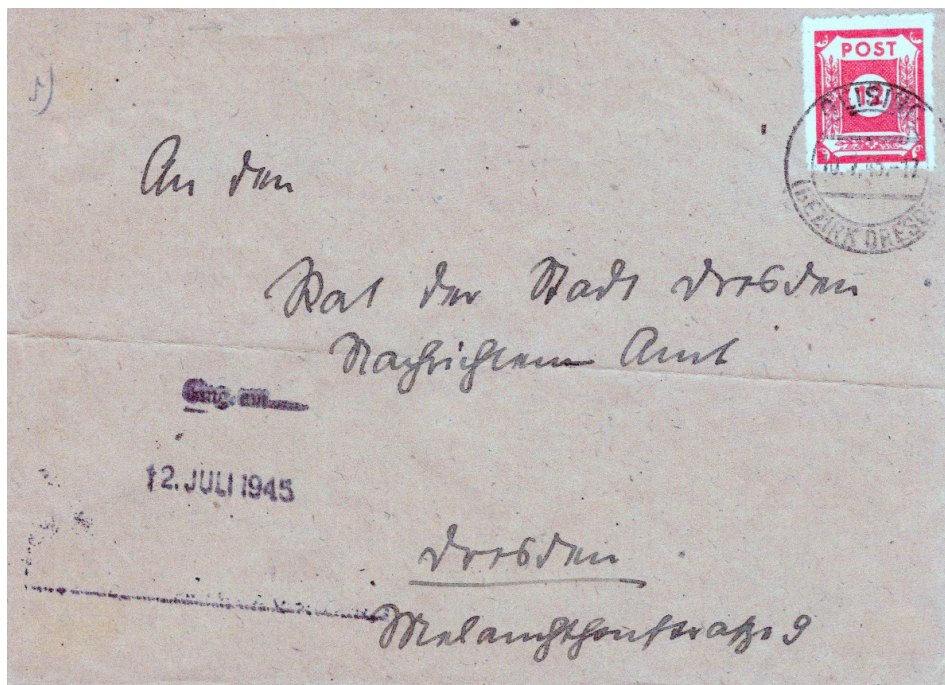 POST
12
10.7.45.-17
(BEZIRK DRESDEN
An den
Rat der Stadt Dresden
Nachrichten Amt
Eing. am
12. JULI 1945
Dresden
Melanchthonstraße 9